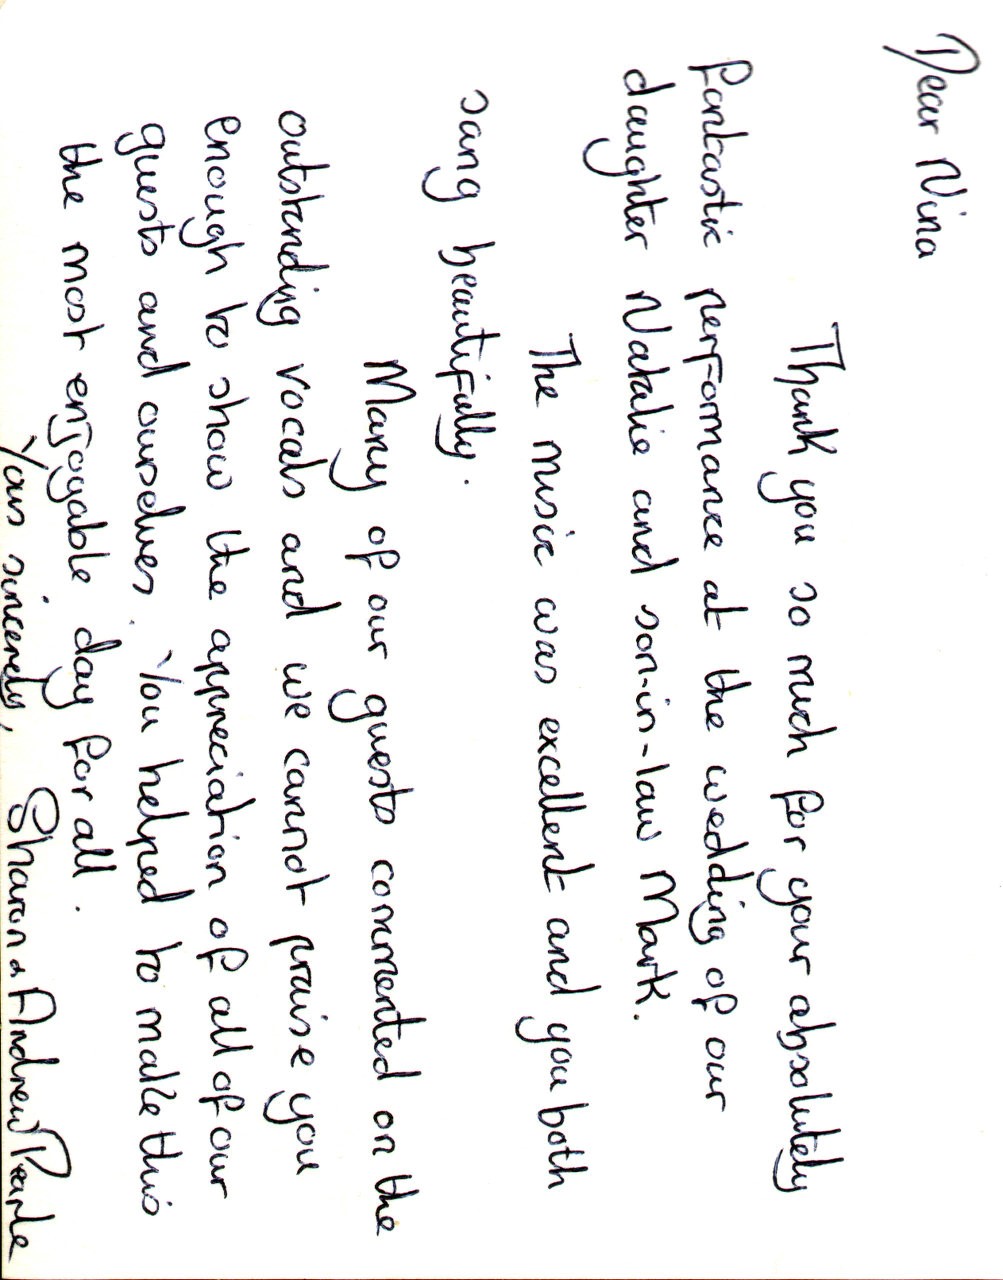 Dear Nina
Thank you so much for your absolutely
fantastic performance at the wedding of our
daughter Natalie and son-in-law Mark.
The music was excellent and you both
sang beautifully.
Many of our guests commented on the
outstanding vocals and we cannot praise you
enough to show the appreciation of all of our
guests and ourselves. You helped to make this
the most enjoyable day for all.
Yours sincerely, Sharon & Andrew Pearle